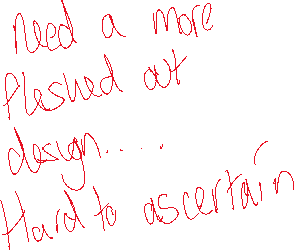 need a more
fleshed out
design.....
Hard to ascertain